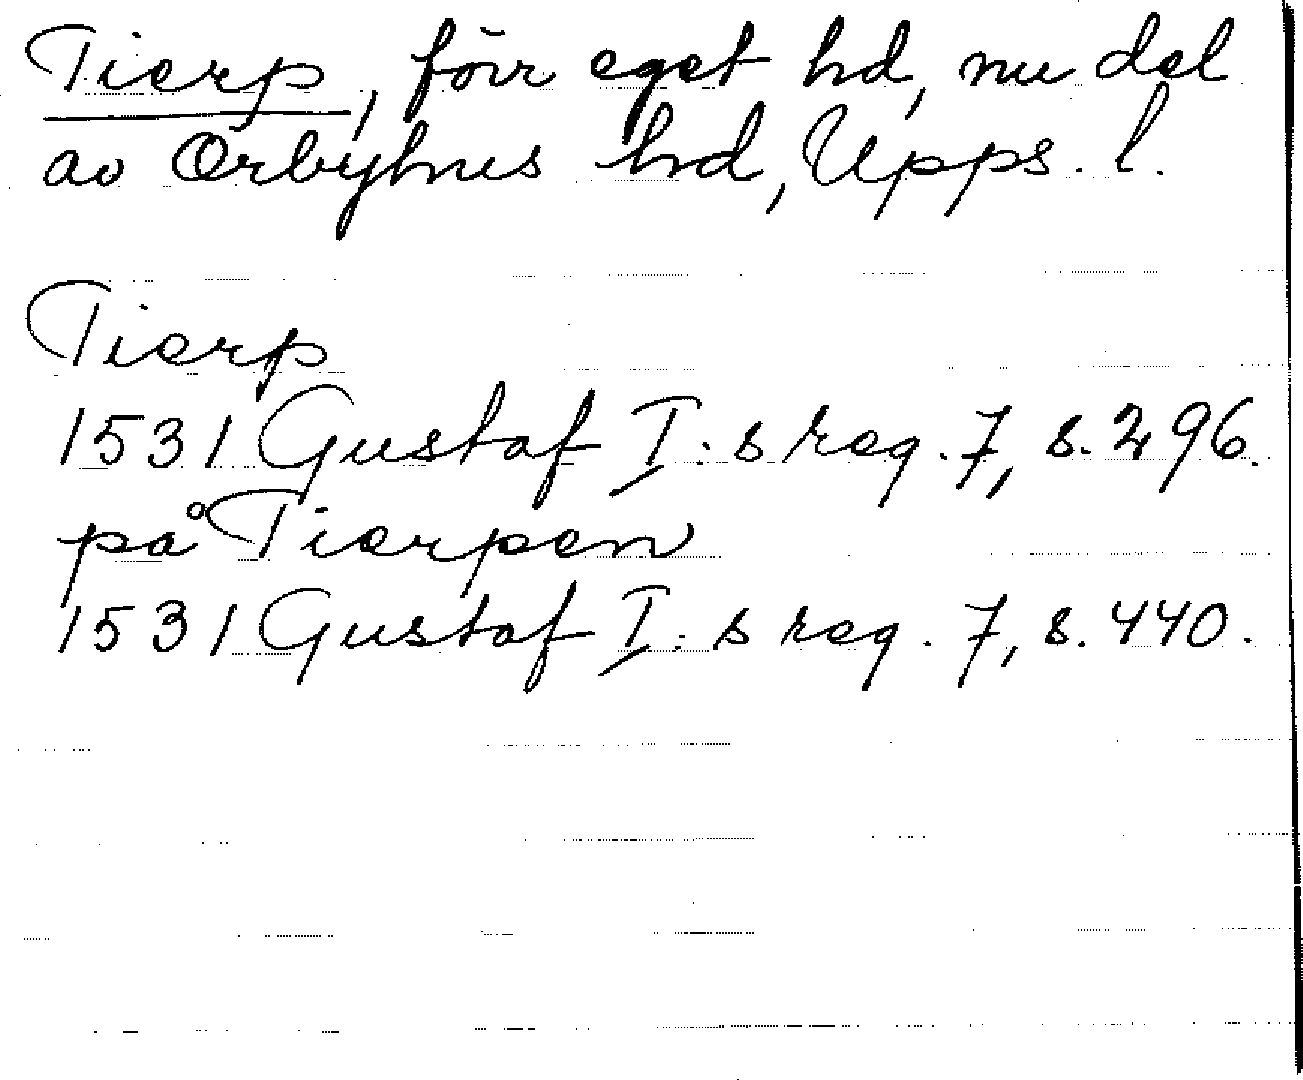 Tierp, förr eget hd, nu del
av Örbyhus hd, Upps. l.
Tierp
1531 Gustaf I:s reg. 7, s. 296.
på Tierpen
1531 Gustaf I:s reg. 7, s. 440.